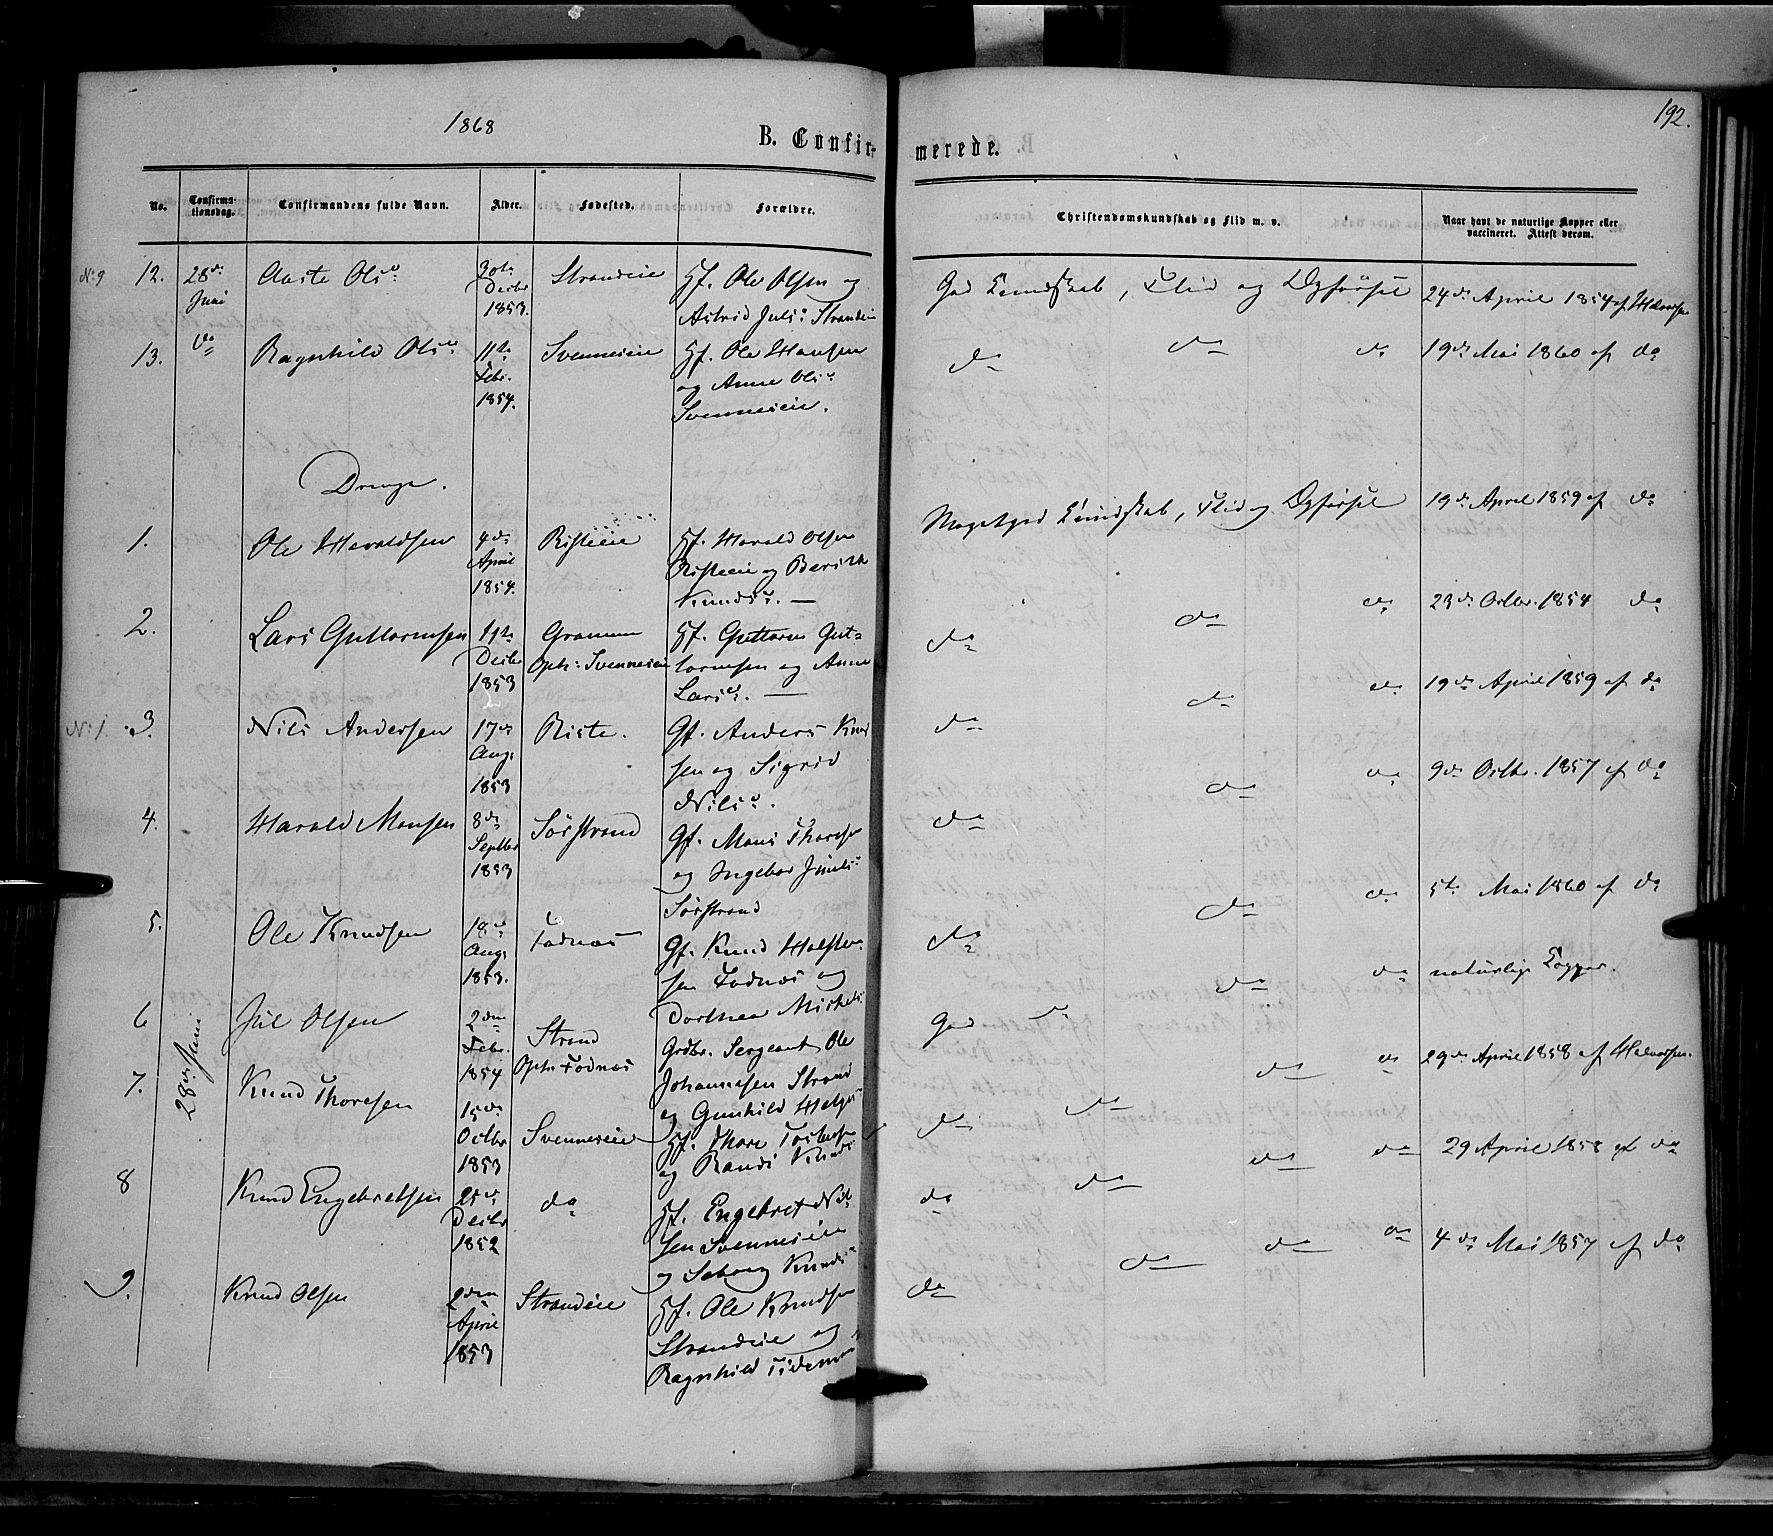 1868
192.
B. Confir-
merede.
No.
Confirma-
tionsdag.
Confirmandens fulde Navn.
Alder.
Fødested.
Forældre.
Christendomskundskab og Flid m. v.
Naar havt de naturlige Kopper eller
vaccineret. Attest derom.
N: 9 12. 28de Juni Aaste Olsd. 30te Decbr 1853. Strandeie Hf. Ole Olsen og
Astrid Julsd. Strandeie
God Kundskab, Flid og Opførsel 24de April 1854 af Halvorsen
13. do Ragnhild Olsd. 11te Febr. 1854. Svenneseie Hf. Ole Hansen
og Anne Olsd.
Svenneseie.
do do do 19de Mai 1860 af do
Drenge.
1. Ole Haraldsen 4de April 1854. Risteeie Hf. Harald Olsen
Risteeie og Berith
Knudsd. —
Megetgod Kundskab, Flid og Opførsel 19de April 1859 af do
2. Lars Guttormsen 11te Decbr 1853 Gramum
Oph: Svenneseie Hf. Guttorm Gut-
tormsen og Anne
Larsd. —
do do do 23de Octbr. 1854 do
N: 1. 3. Nils Andersen 17de Aug. 1853 Riste. Gf. Anders Knud
sen og Sigrid
Nilsd.
do do do 19de April 1859 af do
4. Harald Monsen 8de Septbr 1853 Sørstrand Gf. Mons Thoresen
og Ingebor Juulsd.
Sørstrand
do do do 9de Octbr. 1857 af do
5. Ole Knudsen 18de Aug. 1853. Fodnæs Gf. Knud Halsten-
sen Fodnæs og
Dorthea Mickels
do do do 5te Mai 1860 af do
6 28de Juni Jul Olsen 2den Febr. 1854 Strand
Oph. Fodnæs Grdbr. Sergeant Ole
Johannesen Strand
og Gunhild Helges
God do do do naturlige Kopper.
7. Knud Thoresen 15de Octbr 1853 Svenneseie Hf. Thore Tostensen
og Randi Knuds
do do do do 29de April 1858 af Halvorsen.
8 Knud Engebretsen 25de Decbr 1852 do Hf. Engebret Nil-
sen Svenneseie
og Seborg Knudsd.
do do do do 29 April 1858 af do
9. Knud Olsen 2den April 1853 Strandeie Hf. Ole Knudsen
Strandeie og
Ragnhild Tidemand
do do do do 4de Mai 1857 af do